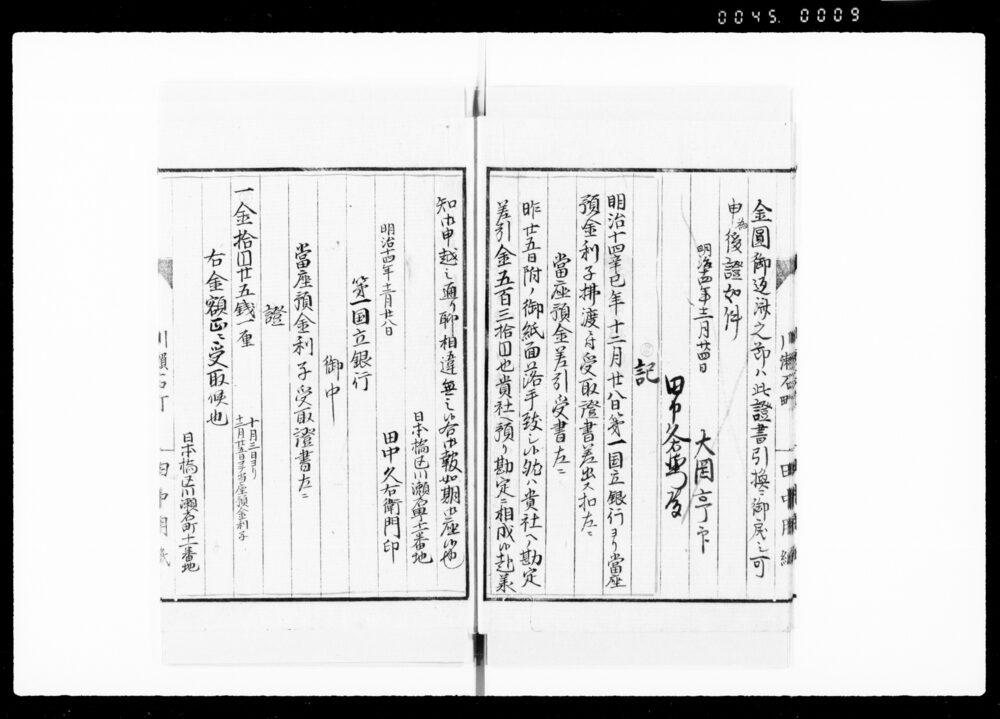 0045. 0009
金圓御返済之節ハ此證書引換ニ御戻シ可
申為後證如件
明治十四年十二月廿四日
大岡亨
田中久右衛門殿
記
明治十四辛巳年十二月廿八日第一国立銀行ヨリ當座
預金利子拂渡ニ付受取證書差出ス扣左ニ
當座預金差引受書左ニ
昨廿五日附ノ御紙面落手致シ候然ハ貴社ヘノ勘定
差引金五百三拾円也貴社ヘ預リ勘定ニ相成候趣承
知御申越之通リ聊相違無之候答御報如期御座候也
日本橋区川瀬石町十一番地
明治十四年十二月廿八日
田中久右衛門印
第一国立銀行
御中
當座預金利子受取證書左ニ
證
一金拾円廿五銭一厘
十月三日ヨリ
十二月廿五日マテ当座預金利子
右金額正ニ受取候也
日本橋区川瀬石町十一番地
川瀬石町
田中用紙